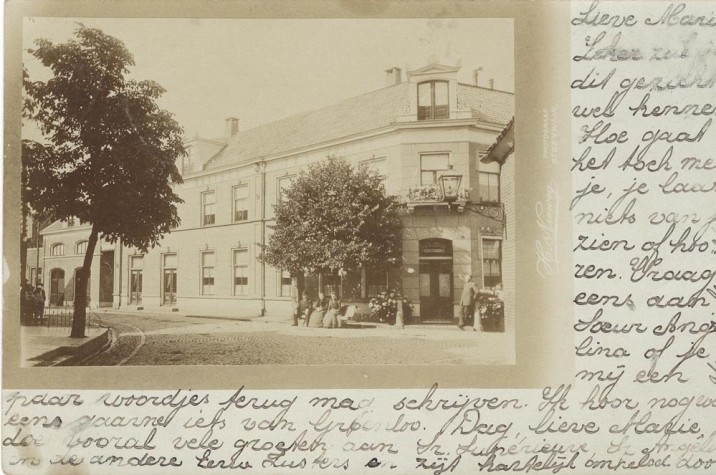 Lieve Mari
Zeker zul j
dit gezicht
wel kennen
Hoe gaat
het toch me
je, je laa
niets van j
zien of hoo
ren. Vraag
eens aan
Sœur Ang
lina of je
mij een
paar woordjes terug mag schrijven. Ik hoor nog we
eens gaarne iets van Groenloo. Dag, lieve Marie,
doe vooral vele groeten aan Sr. Supérieure Sr. Angel
en de andere Eerw Zusters en zijt hartelijk omhelsd door